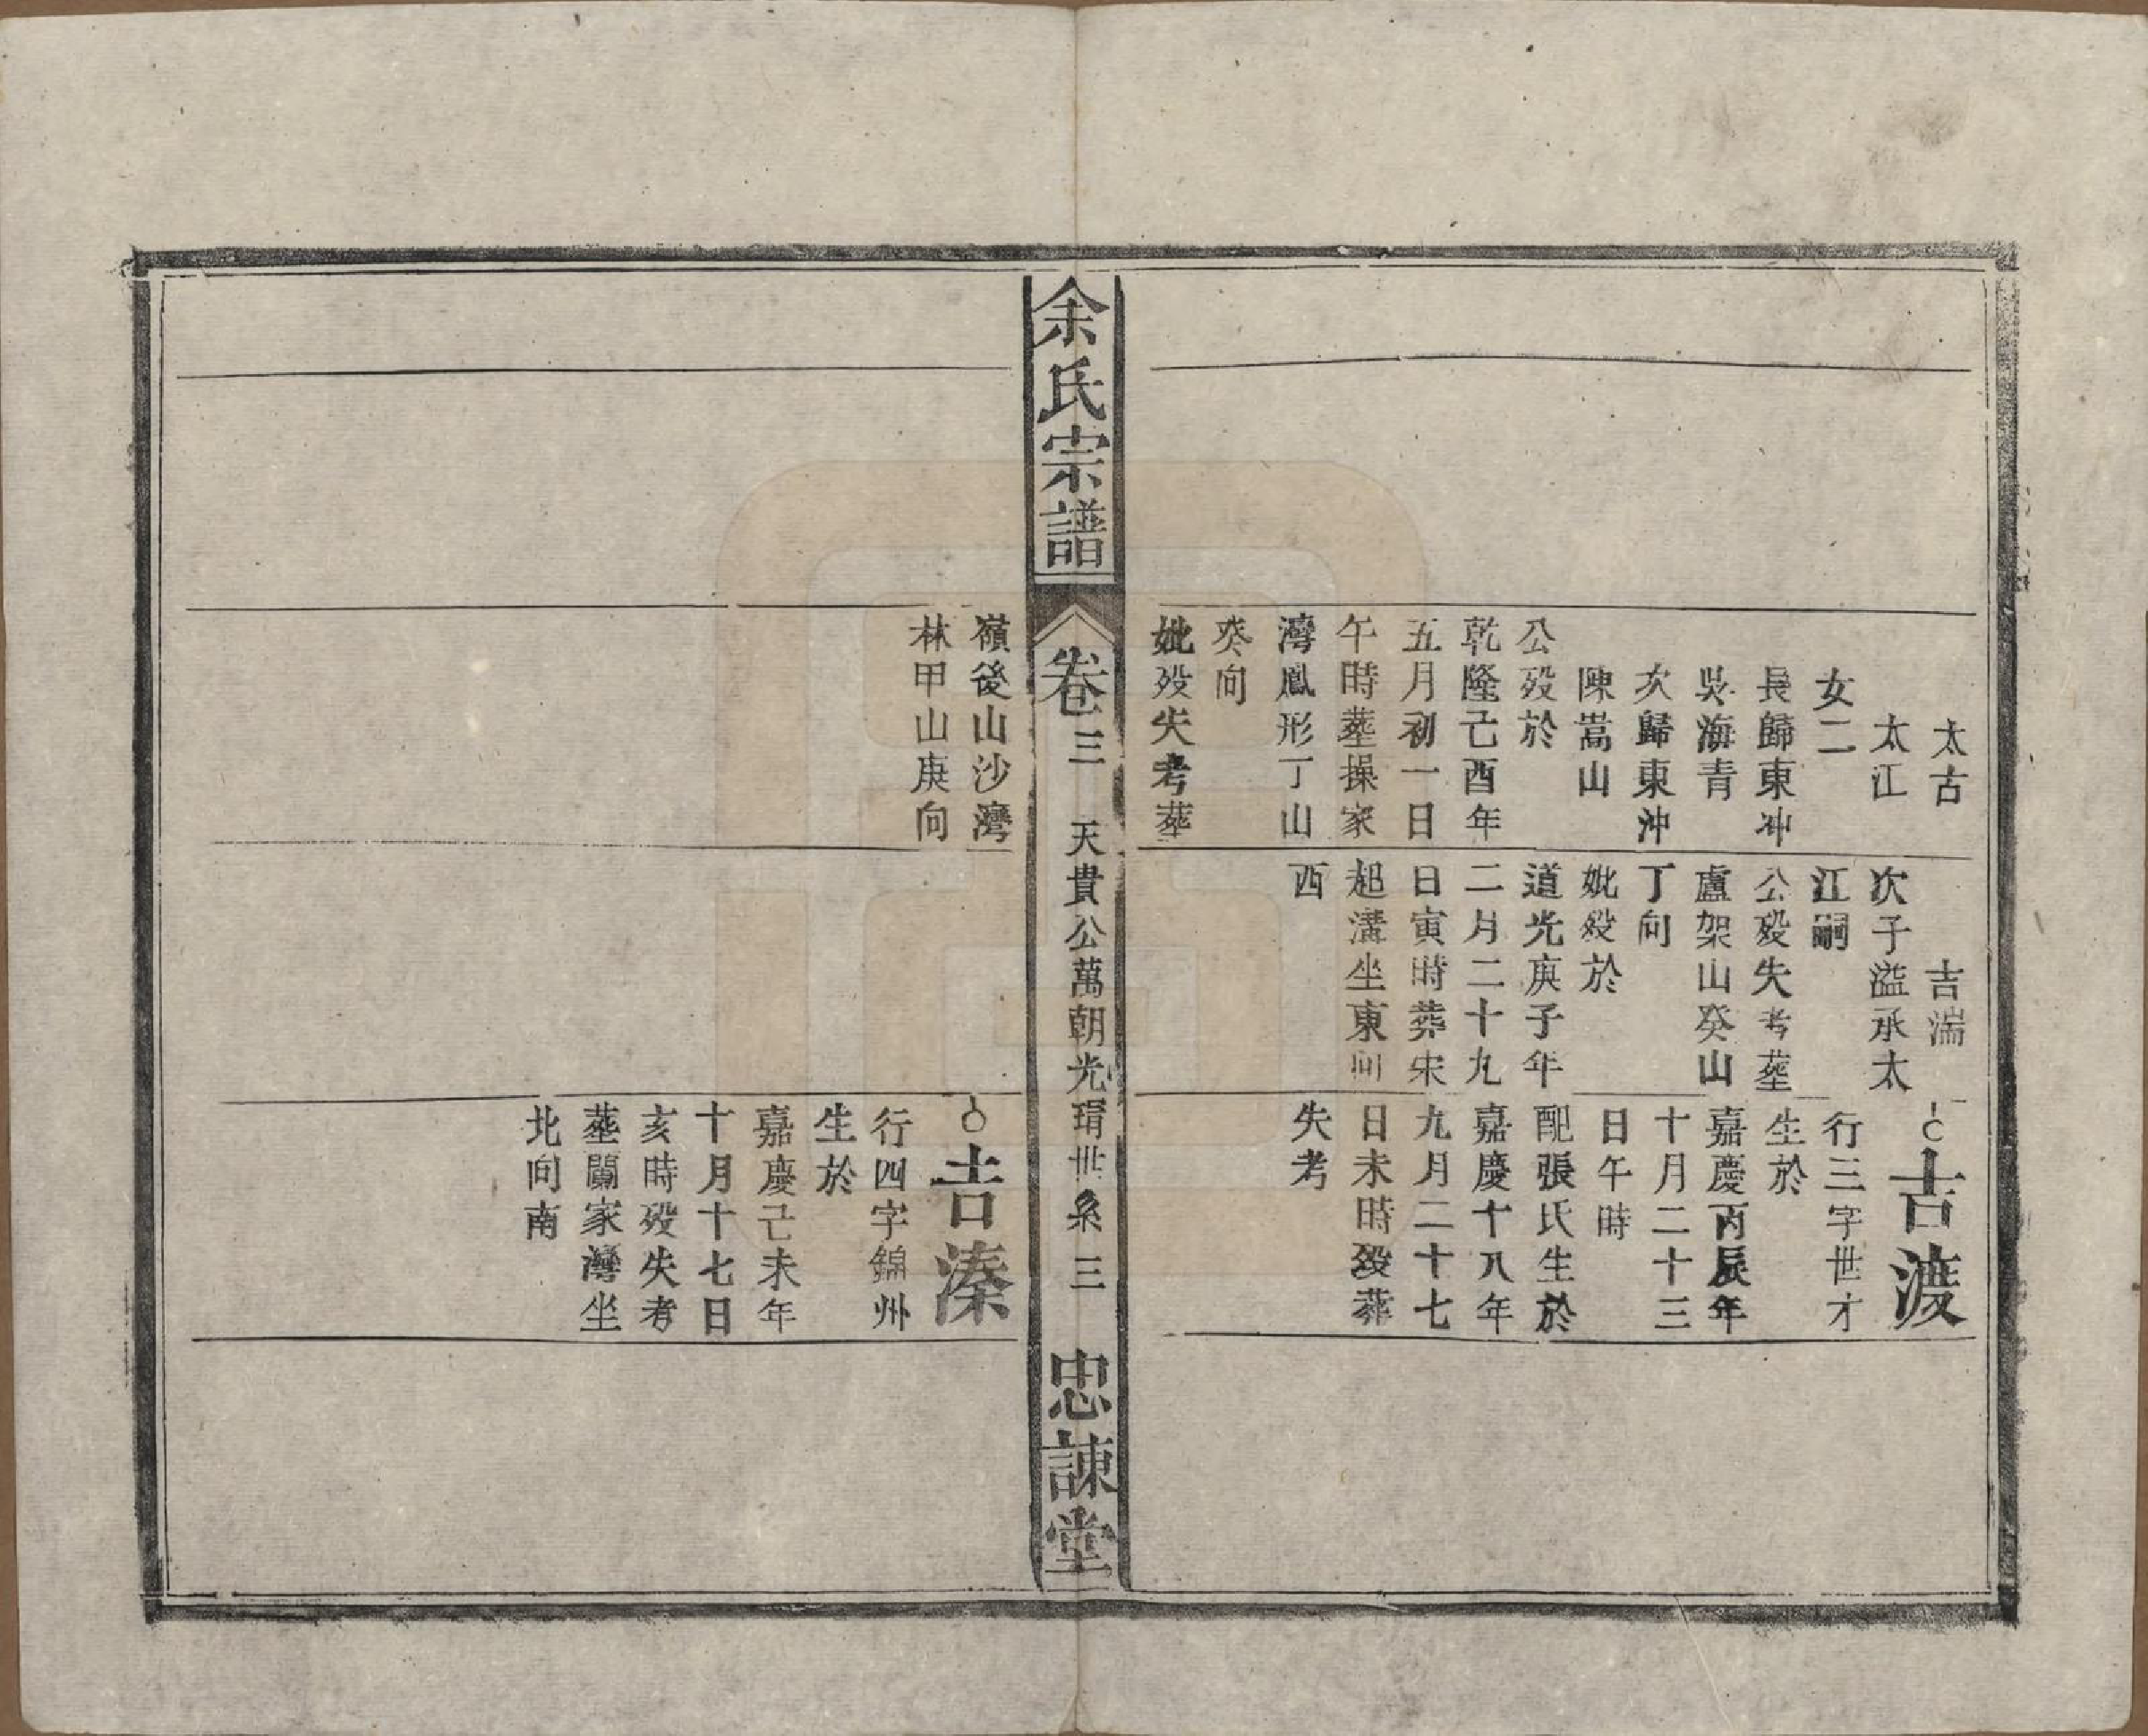 太古
太江
女二
長歸東冲
吳海青
次歸東沖
陳嵩山
公殁於
乾隆己酉年
五月初一日
午時塟操家
灣鳳形丁山
癸向
妣殁失考塟
吉湍
次子溢承太
江嗣
公殁失考塟
盧架山癸山
丁向
妣殁於
道光庚子年
二月二十九
日寅時葬宋
起溝坐東向
西
吉渡
行三字世才
生於
嘉慶丙辰年
十月二十三
日午時
配張氏生於
嘉慶十八年
九月二十七
日未時殁葬
失考
余氏宗譜
卷三
天貴公萬朝光瑻世系
三
忠諫堂
嶺後山沙灣
林甲山庚向
吉溱
行四字錦州
生於
嘉慶己未年
十月十七日
亥時殁失考
塟闞家灣坐
北向南